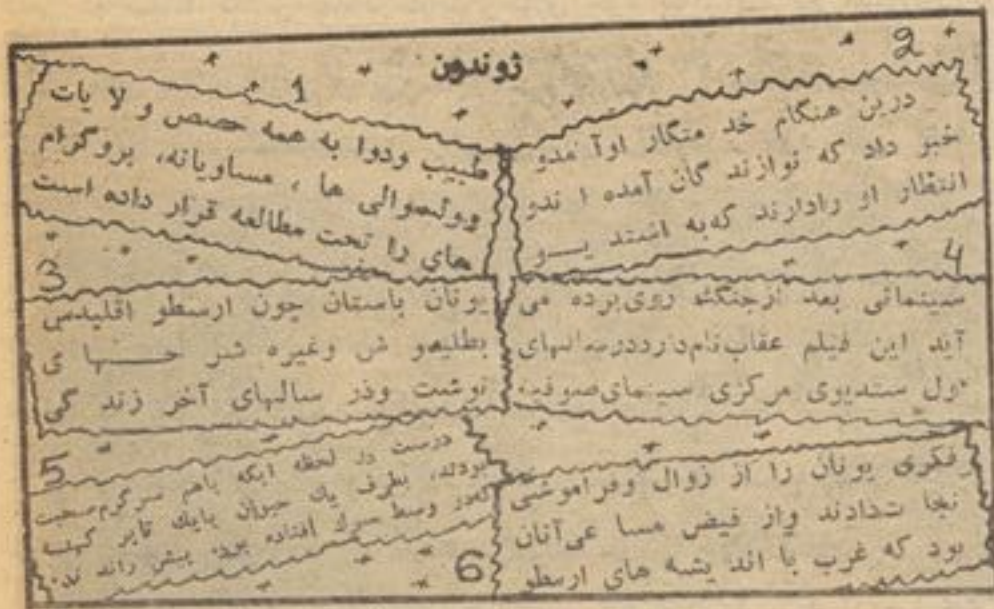 ژوندون
1
طبیب ودوا به همه حصص و لا یات
وولسوالی ها ، مساویانه، پروگرام
های را تحت مطالعه قرار داده است
2
درین هنگام خد متگار اوآ مدو
خبر داد که نوازند گان آمده ا ندو
انتظار او رادارند که به اشتد یـــو
3
یونان باستان چون ارسطو اقلیدس
بطلیمو س وغیره شر حـــــها ی
نوشت ودر سالهای آخر زند گی
4
سینمائی بعد ازجنگ روی پرده می
آید این فیلم عقاب نام دارد درسالهای
ول ستدیوی مرکزی سینمای صوفیه
5
درست در لحظه ایکه باهم سرگرم صحبت
بودند، بطرف یك حیوان بایك تایر کهنه
که در وسط سرك افتاده بود، پیش راند ند.
6
فکری یونان را از زوال وفراموشی
نجا تدادند واز فیض مسا عی آنان
بود که غرب با اند یشه های ارسطو